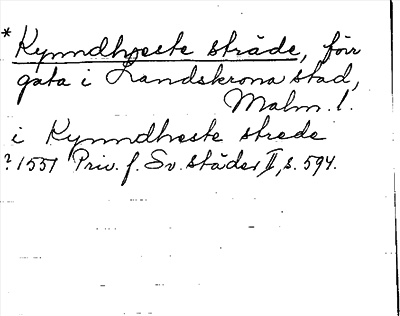 * Kynndheste stræde, förr
gata i Landskrona stad,
Malm. l.
i Kynndheste strede
? 1551 Priv. f. Sv. städer II, s. 594.